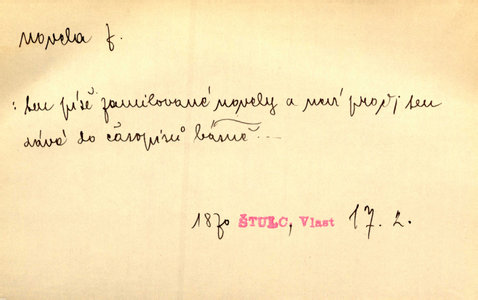 novela f.
: ten píše zamilované novely a noví prožj ten
dává do časopisů básně...
1870 ŠTULC, Vlast 17. 2.